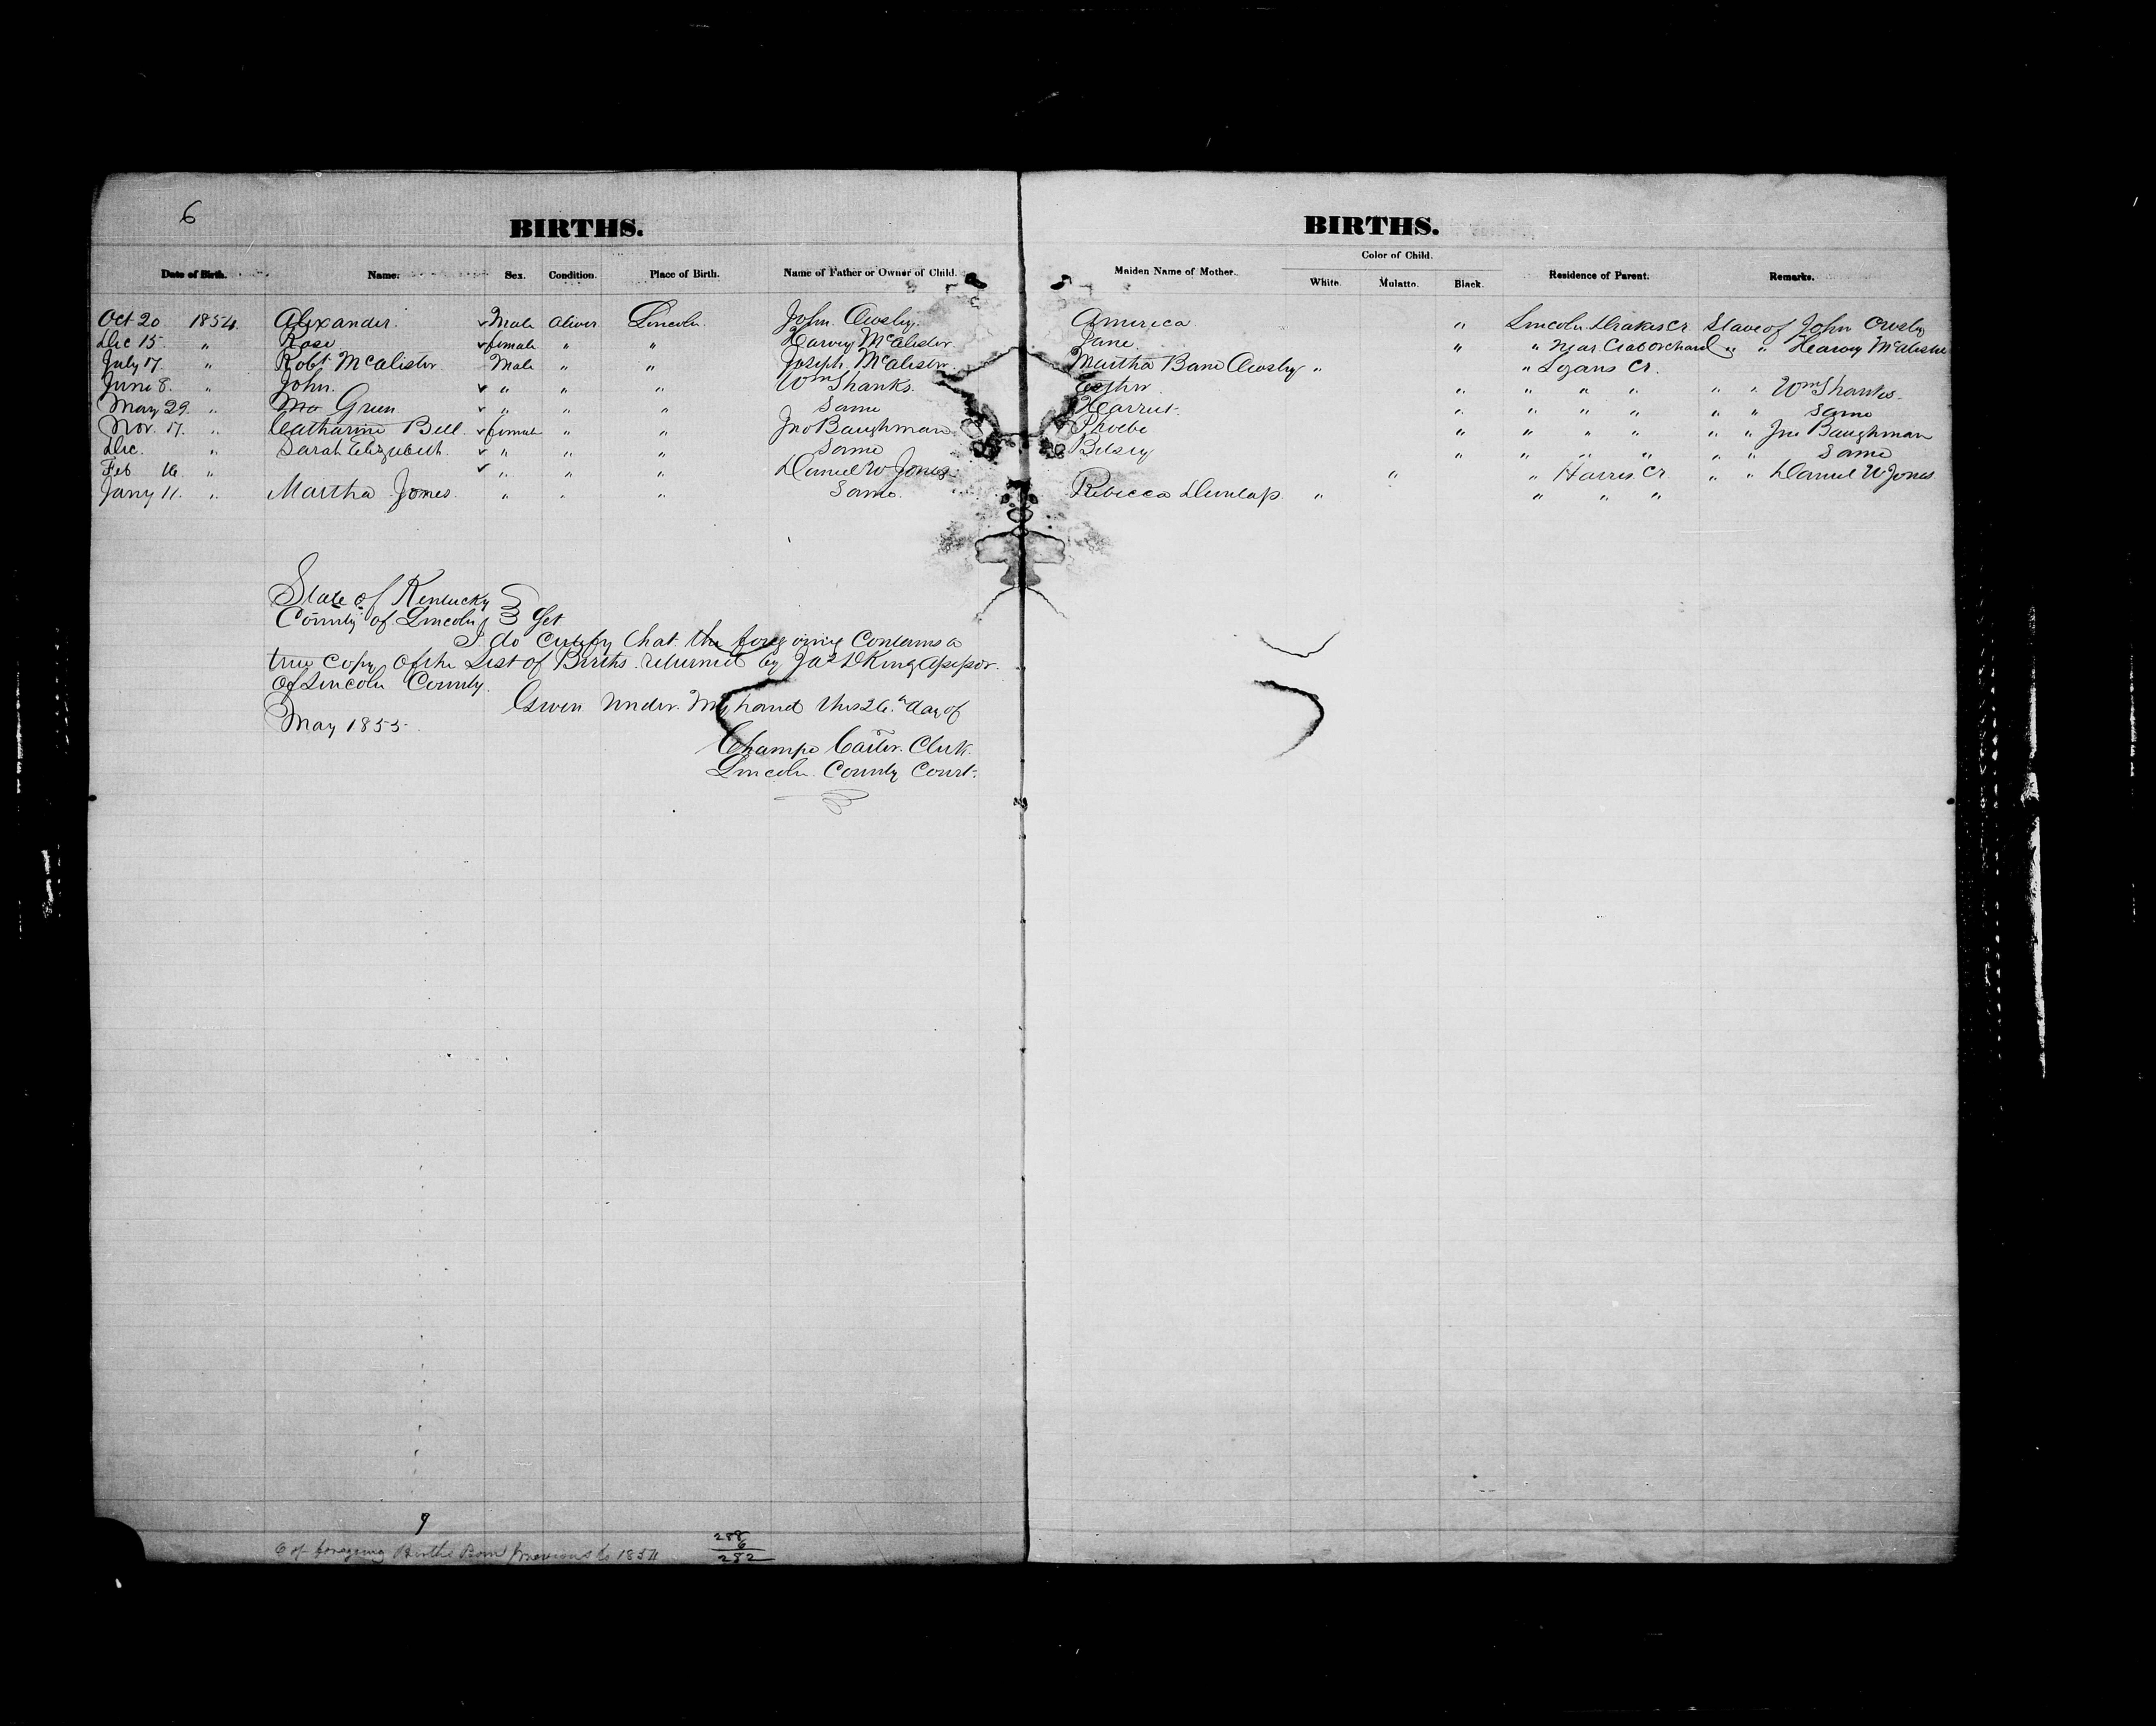 6
BIRTHS.
BIRTHS.
Date of Birth. Name. Sex. Condition. Place of Birth. Name of Father or Owner of Child. Maiden Name of Mother. Color of Child. White. Mulatto. Black. Residence of Parent. Remarks.
Oct 20 1854. Alexander. ✓ Male Alive Lincoln. John Owsley. America " Lincoln Drakes Cr. Slave of John Owsley
Dec 15 " Rose ✓ female " " Harvey McAlister. Jane " " Near Crab Orchard " " Harvey McAlister
July 17. " Robt McAlister Male " " Joseph McAlister. Martha Bane Owsley " " Logans Cr.
June 8. " John. ✓ " " " Wm Shanks. Esther " " " " " " Wm Shanks.
May 29. " Green ✓ " " " Same Harriet. " " " " " " Same
Nov. 17. " Catharine Bell ✓ female " " Jno Baughman Phoebe " " " " " " Jno Baughman
Dec. " Sarah Elizabeth. ✓ " " " Same Betsey " " " " " " Same
Feb 16 " ✓ " " " Daniel W Jones. " " Harris Cr. " " Daniel W Jones
Jany 11. " Martha Jones. " " " Same. Rebecca Dunlap. " " " "
State of Kentucky
County of Lincoln
I do certify that the foregoing Contains a
true copy of the List of Births returned by Jas D King Assessor.
Of Lincoln County.
Given under My hand this 26th day of
May 1855.
Champe Carter. Clerk.
Lincoln County Court.
9
6 of foregoing Births Born previous to 1854
288
6
282